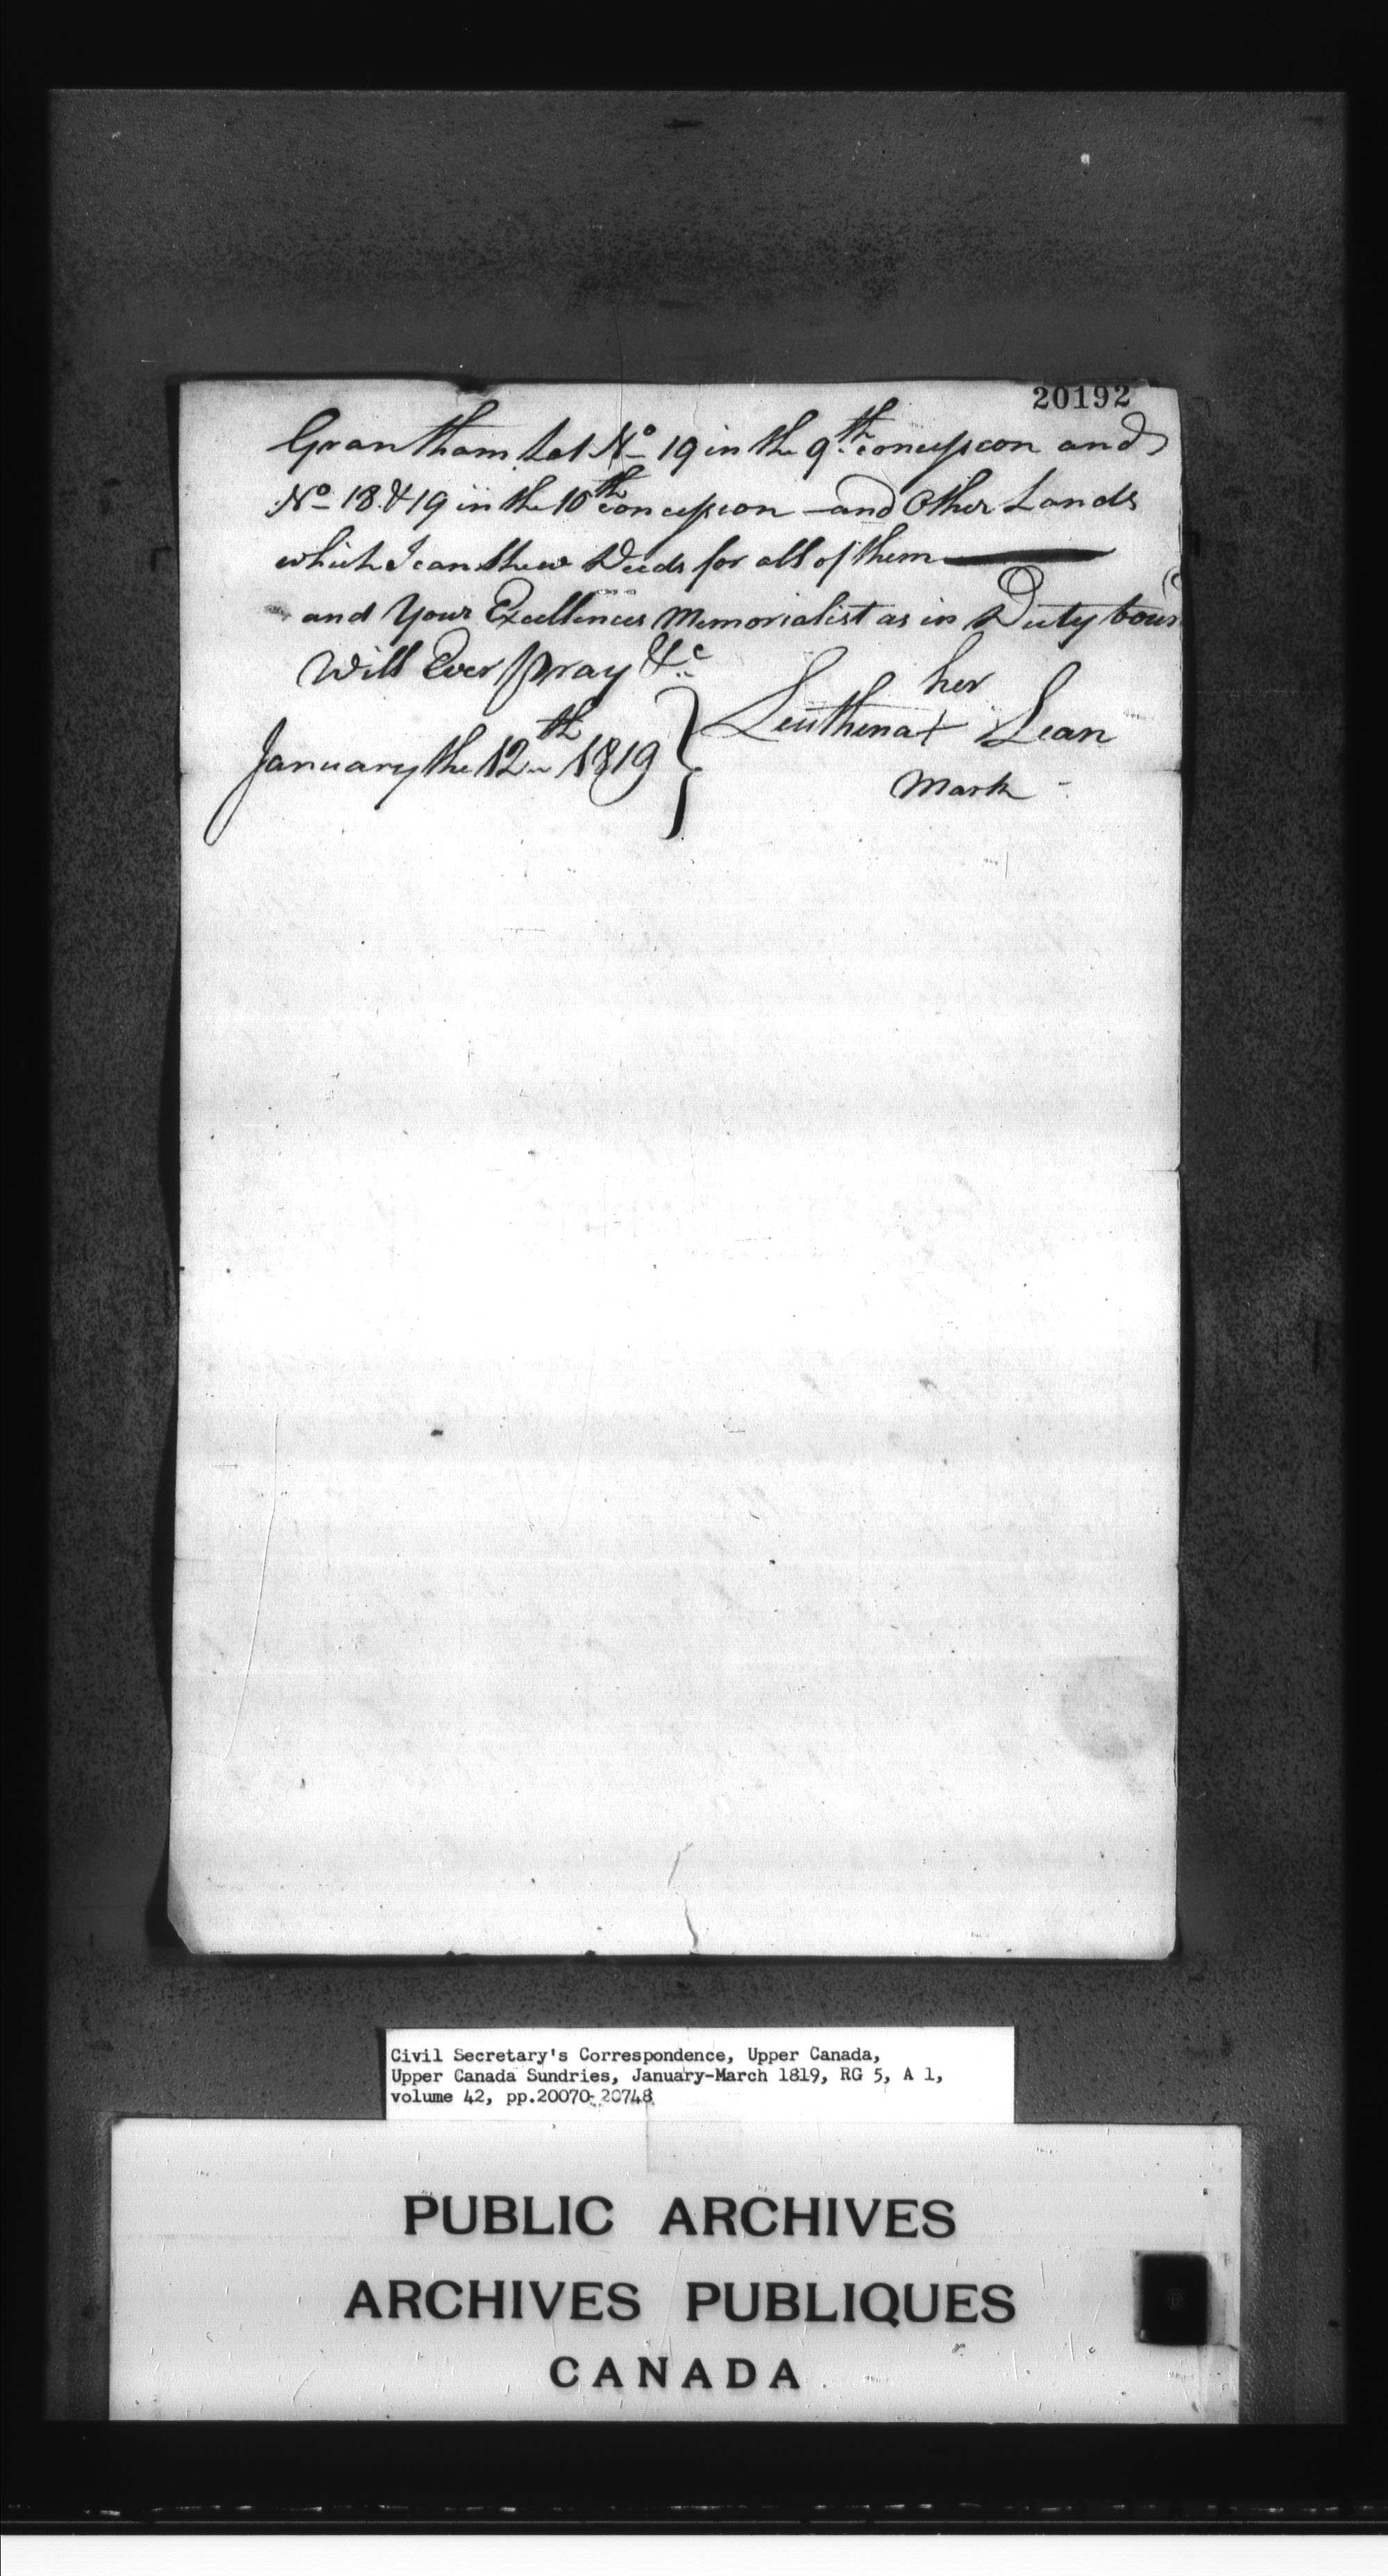 20192
Grantham Lot No 19 in the 9th concession and
No 18 & 19 in the 10th concession and Other Lands
which I can shew Deeds for all of them
and Your Excellences Memorialist as in Duty boun
Will Ever pray &c
her
Leuthena + Lean
January the 12th 1819 }
Mark
Civil Secretary's Correspondence, Upper Canada,
Upper Canada Sundries, January-March 1819, RG 5, A 1,
volume 42, pp.20070-20748
PUBLIC ARCHIVES
ARCHIVES PUBLIQUES
CANADA